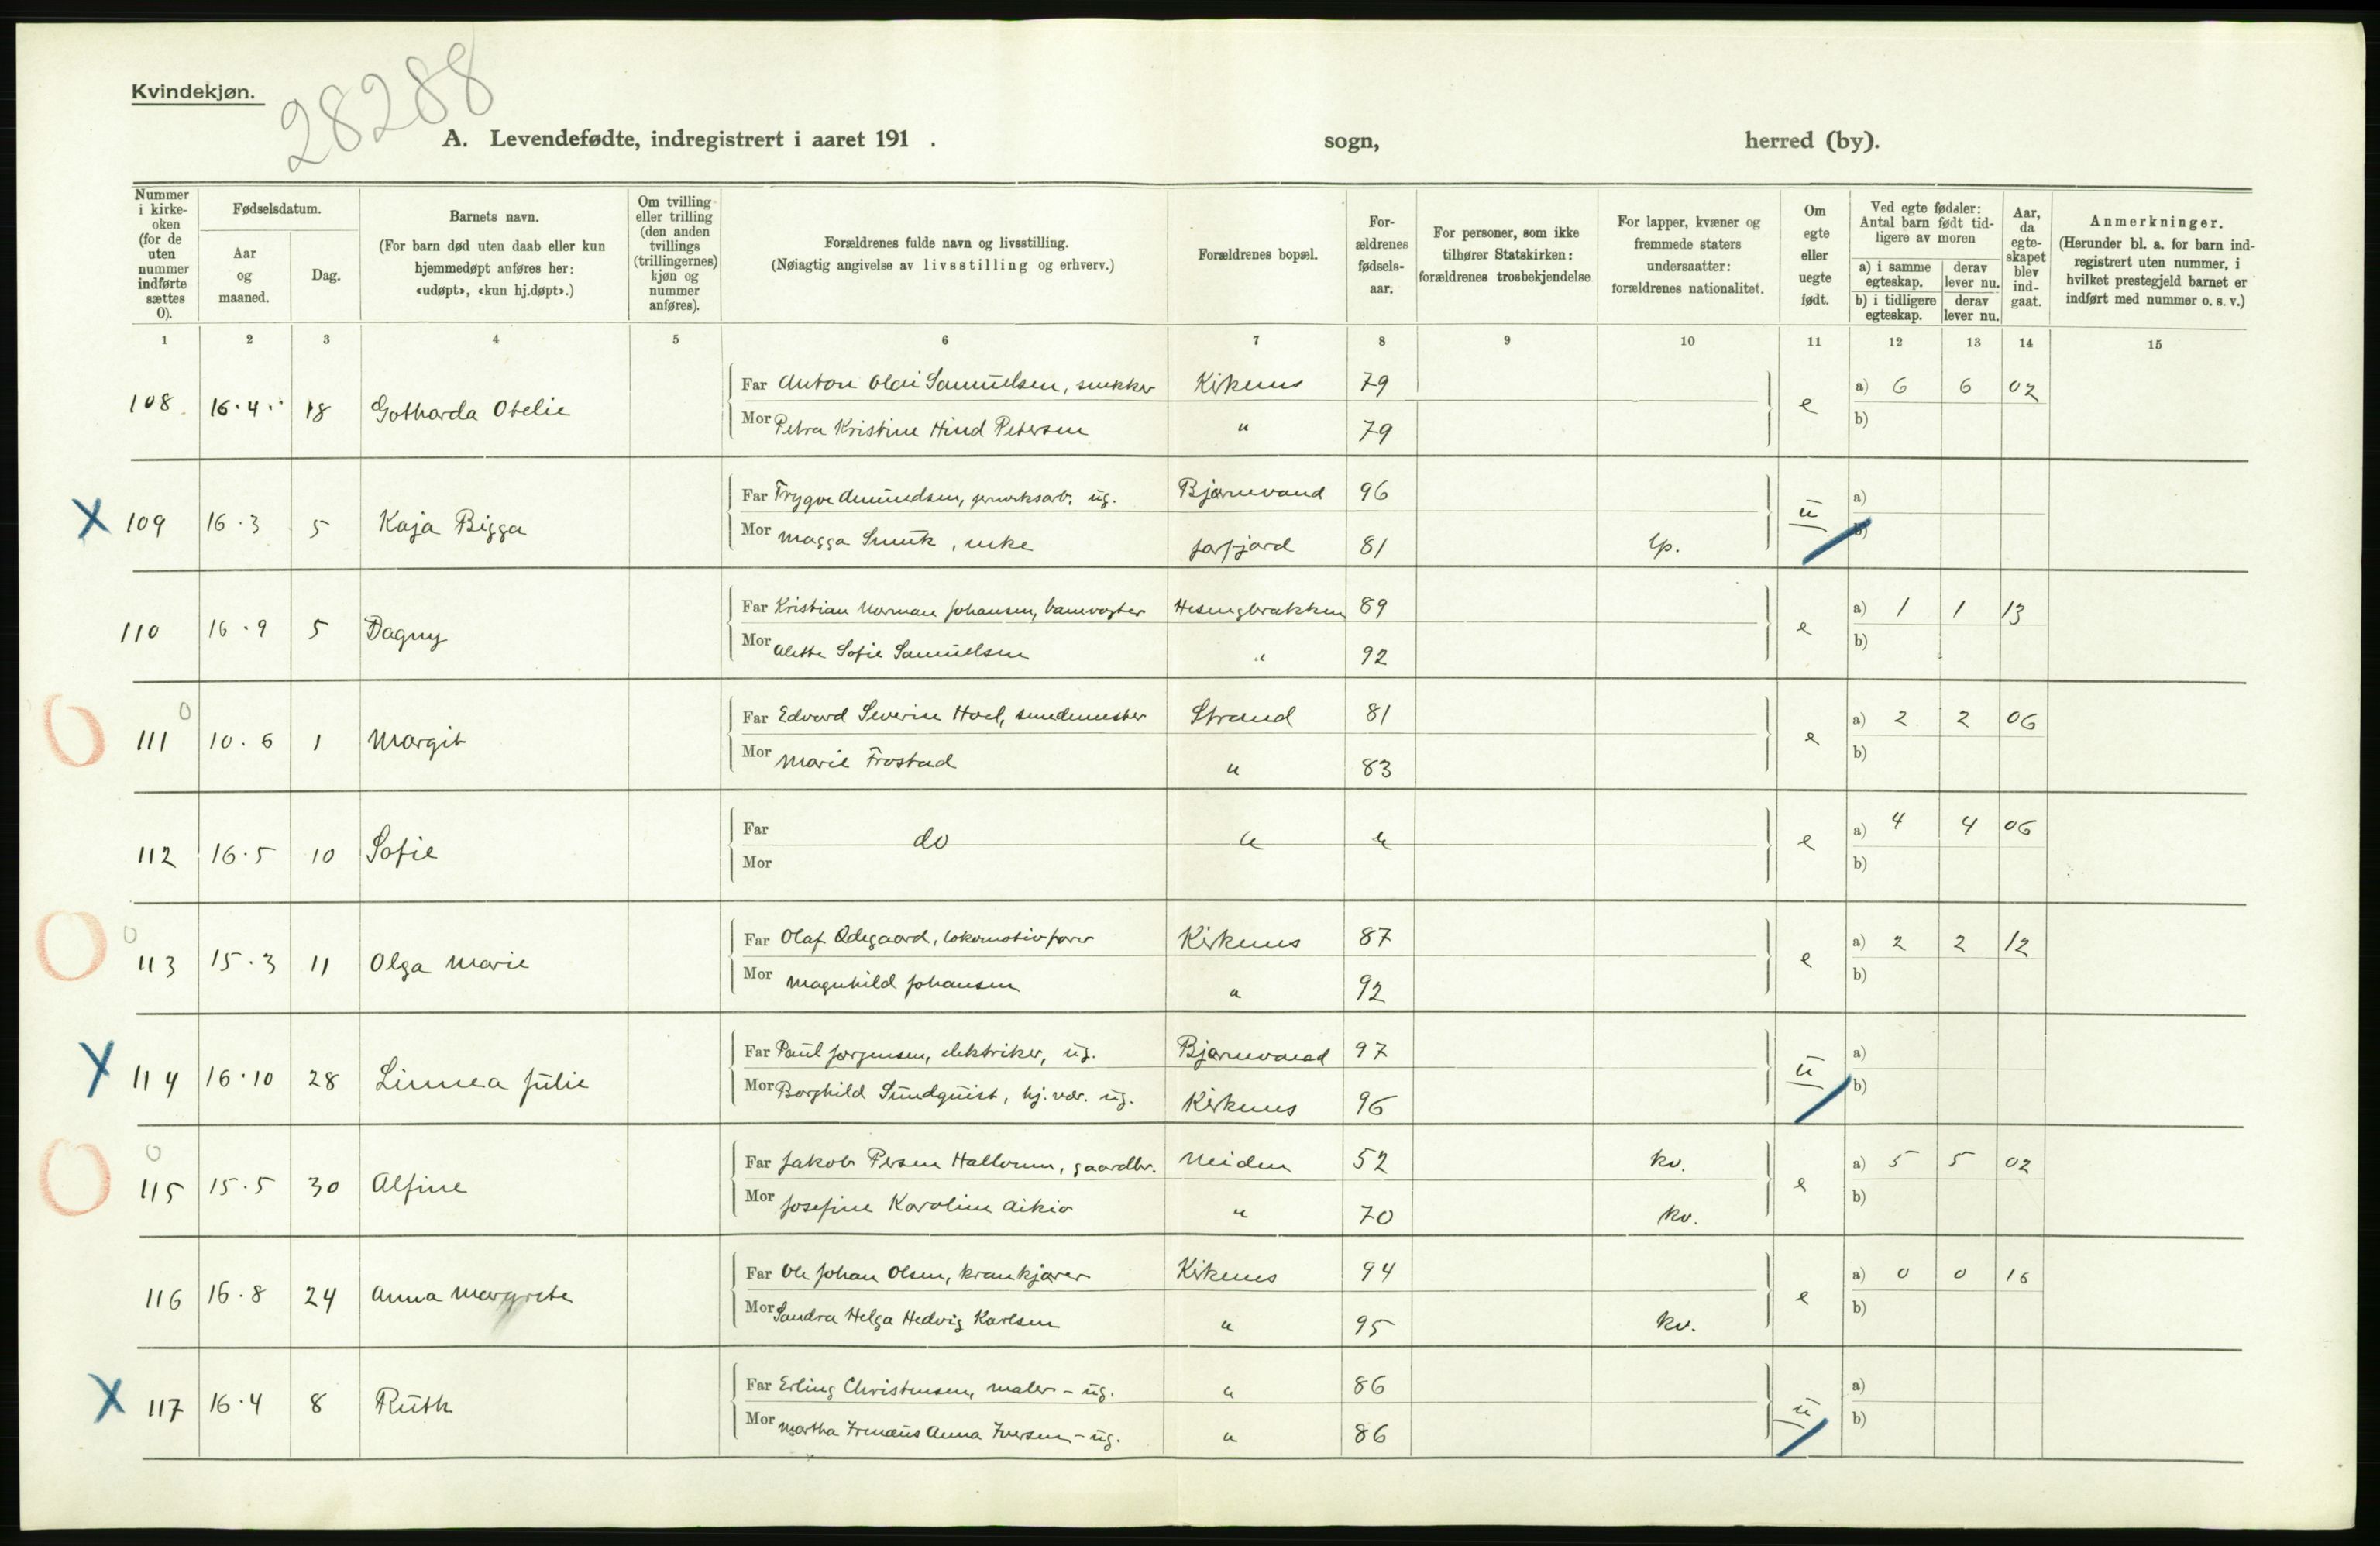 Kvindekjøn.
28288
A. Levendefødte, indregistrert i aaret 191 . sogn, herred (by).
Nummer i kirke-oken (for de uten nummer indførte sættes 0).
Fødselsdatum.
Aar og maaned.
Dag.
Barnets navn.
(For barn død uten daab eller kun hjemmedøpt anføres her: «udøpt», «kun hj.døpt».)
Om tvilling eller trilling (den anden tvillings (trillingernes) kjøn og nummer anføres).
Forældrenes fulde navn og livsstilling.
(Nøiagtig angivelse av livsstilling og erhverv.)
Forældrenes bopæl.
For-ældrenes fødsels-aar.
For personer, som ikke tilhører Statskirken: forældrenes trosbekjendelse
For lapper, kvæner og fremmede staters undersaatter: forældrenes nationalitet.
Om egte eller uegte født.
Ved egte fødsler: Antal barn født tid-ligere av moren
a) i samme egteskap.
derav lever nu.
b) i tidligere egteskap.
derav lever nu.
Aar, da egte-skapet blev ind-gaat.
Anmerkninger.
(Herunder bl. a. for barn ind-registrert uten nummer, i hvilket prestegjeld barnet er indført med nummer o. s. v.)
1 2 3 4 5 6 7 8 9 10 11 12 13 14 15
108. 16.4. 18 Gotharda Otelie Far Anton Olai Samuelsen, snekker Kirkenes 79 e a) 6 6 02
Mor Petra Kristine Hind Petersen " 79 b)
X 109 16.3 5 Kaja Bigga Far Trygve Amundsen, ug. Bjørnevand 96 u a)
Mor Magga , enke Jarfjord 81 lp. b)
110 16.9 5 Dagny Far Kristian Norman Johansen, banevogter 89 e a) 1 1 13
Mor Alette Sofie Samuelsen " 92 b)
0 0 111 10.6 1 Margit Far Edvard Severin Hoel, smedmester Strand 81 e a) 2 2 06
Mor Marie Frostad " 83 b)
112 16.5 10 Sofie Far do " " e a) 4 4 06
Mor b)
0 0 113 15.3 11 Olga Marie Far Olaf Ødegaard, lokomotivfører Kirkenes 87 e a) 2 2 12
Mor Magnhild Johansen " 92 b)
X 114 16.10 28 Linnea Julie Far Paul Jørgensen, elektriker, ug. Bjørnevand 97 u a)
Mor Borghild Sundquist, hj. vær. ug. Kirkenes 96 b)
0 0 115 15.5 30 Alfine Far Jakob Persen Hallonen, gaardbr. Neiden 52 kv. e a) 5 5 02
Mor Josefine Karoline Aikio " 70 kv. b)
116 16.8 24 Anna Margrete Far Ole Johan Olsen, krankjører Kirkenes 94 e a) 0 0 16
Mor Sandra Helga Hedvig Karlsen " 95 kv. b)
X 117 16.4 8 Ruth Far Erling Christensen, maler - ug. " 86 u a)
Mor Martha Anna Iversen - ug. " 86 b)